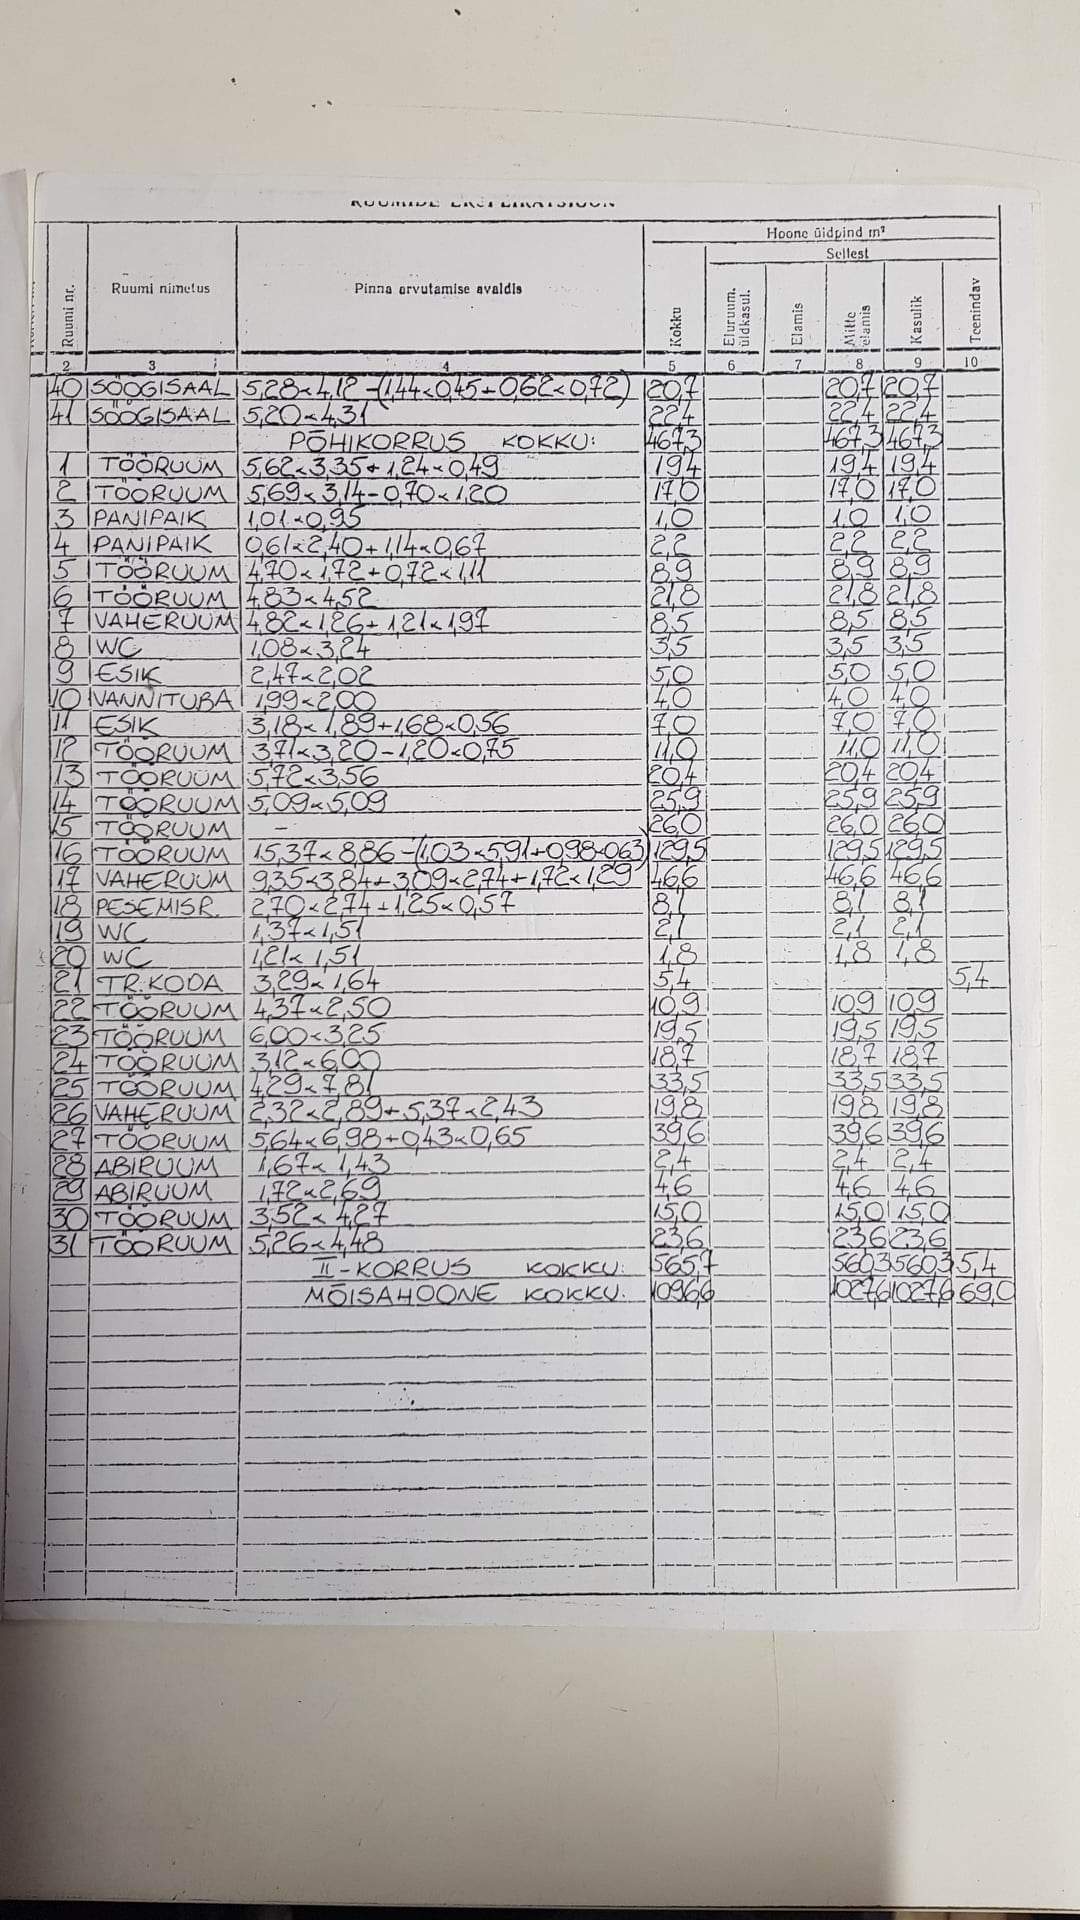 RUUMIDE EKSPLIKATSIOON
Hoone üldpind m²
Sellest
Ruumi nr. Ruumi nimetus Pinna arvutamise avaldis Kokku Eluruum. üldkasul. Elamis Mitte elamis Kasulik Teenindav
2 3 4 5 6 7 8 9 10
40 SÖÖGISAAL 5,28×4,12-(1,44×0,45+0,62×0,72) 20,7 20,7 20,7
41 SÖÖGISAAL 5,20×4,31 22,4 22,4 22,4
PÕHIKORRUS KOKKU: 467,3 467,3 467,3
1 TÖÖRUUM 5,62×3,35+1,24×0,49 19,4 19,4 19,4
2 TÖÖRUUM 5,69×3,14-0,70×1,20 17,0 17,0 17,0
3 PANIPAIK 1,01×0,95 1,0 1,0 1,0
4 PANIPAIK 0,61×2,40+1,14×0,67 2,2 2,2 2,2
5 TÖÖRUUM 4,70×1,72+0,72×1,11 8,9 8,9 8,9
6 TÖÖRUUM 4,83×4,52 21,8 21,8 21,8
7 VAHERUUM 4,82×1,26+1,21×1,97 8,5 8,5 8,5
8 WC 1,08×3,24 3,5 3,5 3,5
9 ESIK 2,47×2,02 5,0 5,0 5,0
10 VANNITUBA 1,99×2,00 4,0 4,0 4,0
11 ESIK 3,18×1,89+1,68×0,56 7,0 7,0 7,0
12 TÖÖRUUM 3,71×3,20-1,20×0,75 11,0 11,0 11,0
13 TÖÖRUUM 5,72×3,56 20,4 20,4 20,4
14 TÖÖRUUM 5,09×5,09 25,9 25,9 25,9
15 TÖÖRUUM - 26,0 26,0 26,0
16 TÖÖRUUM 15,37×8,86-(1,03×5,91+0,98×0,63) 129,5 129,5 129,5
17 VAHERUUM 9,35×3,84+3,09×2,74+1,72×1,29 46,6 46,6 46,6
18 PESEMISR. 2,70×2,74+1,25×0,57 8,1 8,1 8,1
19 WC 1,37×1,51 2,1 2,1 2,1
20 WC 1,21×1,51 1,8 1,8 1,8
21 TR. KODA 3,29×1,64 5,4 5,4
22 TÖÖRUUM 4,37×2,50 10,9 10,9 10,9
23 TÖÖRUUM 6,00×3,25 19,5 19,5 19,5
24 TÖÖRUUM 3,12×6,00 18,7 18,7 18,7
25 TÖÖRUUM 4,29×7,81 33,5 33,5 33,5
26 VAHERUUM 2,32×2,89+5,37×2,43 19,8 19,8 19,8
27 TÖÖRUUM 5,64×6,98+0,43×0,65 39,6 39,6 39,6
28 ABIRUUM 1,67×1,43 2,4 2,4 2,4
29 ABIRUUM 1,72×2,69 4,6 4,6 4,6
30 TÖÖRUUM 3,52×4,27 15,0 15,0 15,0
31 TÖÖRUUM 5,26×4,48 23,6 23,6 23,6
II-KORRUS KOKKU: 565,7 560,3 560,3 5,4
MÕISAHOONE KOKKU: 1096,6 1027,6 1027,6 69,0